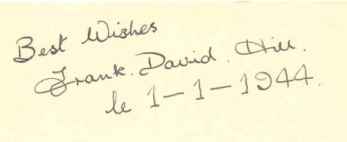 Best Wishes
Frank. David. Hill.
le 1-1-1944.